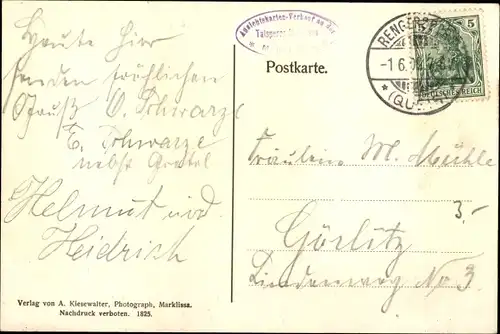 Heute hier
senden fröhlichen
Gruß O. Schwarze
E. Schwarze
nebst Gretel
Helmut und
Heidrich
Verlag von A. Kiesewalter, Photograph, Marklissa.
Nachdruck verboten. 1825.
Ansichtskarten-Verkauf an der
Talsperre
Postkarte.
-1.6.
(QU
5
DEUTSCHES REICH
Fräulein M. Mühle
3.-
Görlitz
Lindenweg No 3.